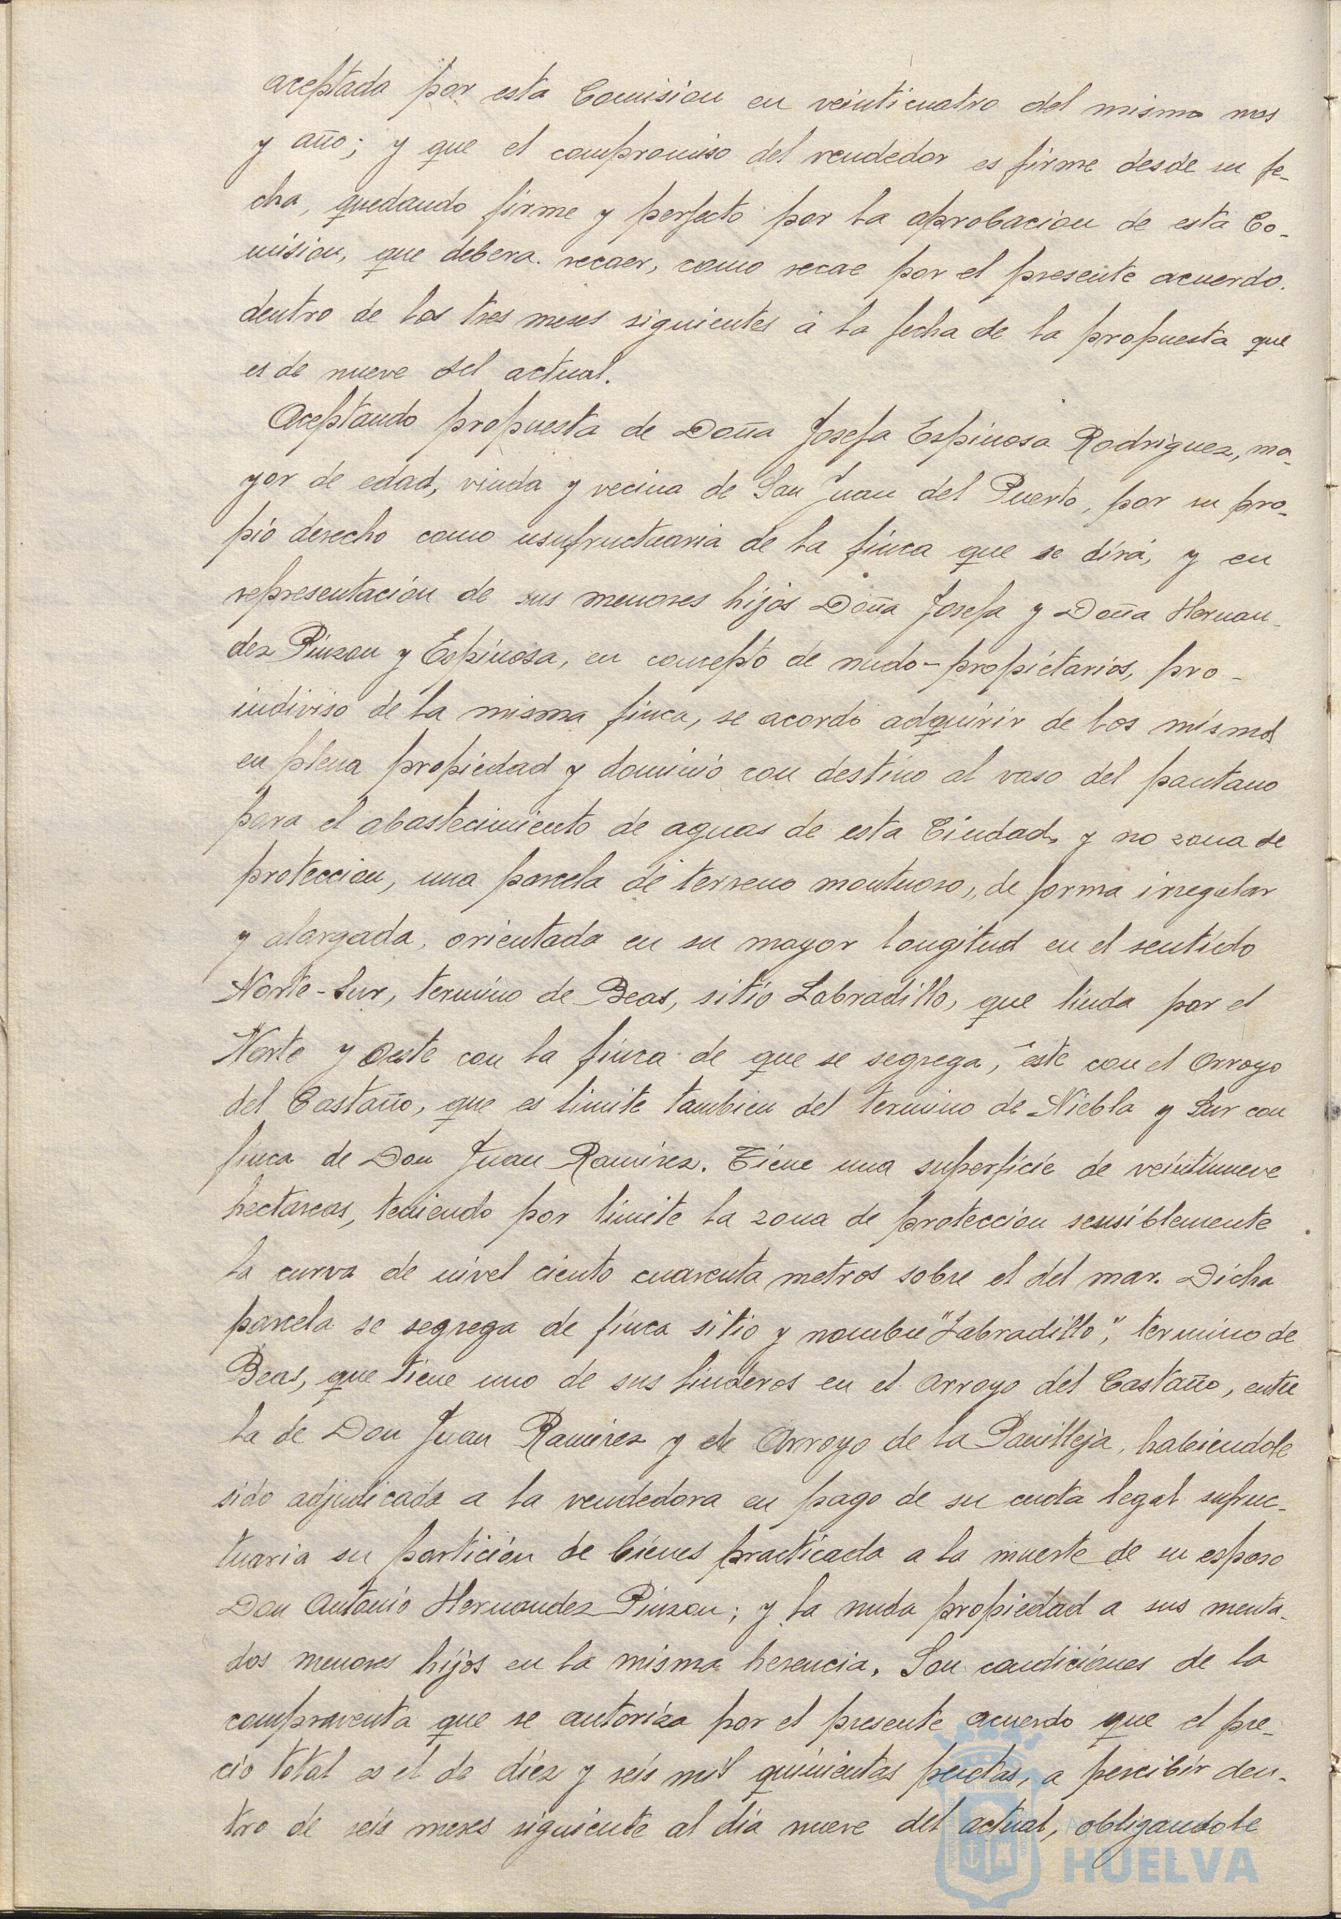 aceptada por esta Comision en veinticuatro del mismo mes
y año; y que el compromiso del vendedor es firme desde su fe-
cha, quedando firme y perfecto por la aprobacion de esta Co-
mision, que debera recaer, como recae por el presente acuerdo.
dentro de los tres meses siguientes á la fecha de la propuesta que
es de nueve del actual.
Aceptando propuesta de Doña Josefa Espinosa Rodriguez, ma-
yor de edad, viuda y vecina de San Juan del Puerto, por su pro-
pio derecho como usufructuaria de la finca que se dirá, y en
representación de sus menores hijos Doña Josefa y Doña Hernan-
dez Pinzon y Espinosa, en concepto de nudo-propietarios, pro-
indiviso de la misma finca, se acordó adquirir de los mismos
en plena propiedad y dominio con destino al vaso del pantano
para el abastecimiento de aguas de esta Ciudad, y no zona de
proteccion, una parcela de terreno montuoso, de forma irregular
y alargada, orientada en su mayor longitud en el sentido
Norte-Sur, termino de Beas, sitio Labradillo, que linda por el
Norte y Oeste con la finca de que se segrega, este con el arroyo
del Castaño, que es limite tambien del termino de Niebla y Sur con
finca de Don Juan Ramirez. Tiene una superficie de veintinueve
hectareas, teniendo por limite la zona de protección sensiblemente
la curva de nivel ciento cuarenta metros sobre el del mar. Dicha
parcela se segrega de finca sitio y nombre "Labradillo", termino de
Beas, que tiene uno de sus linderos en el arroyo del Castaño, entre
la de Don Juan Ramirez y el Arroyo de la Panilleja, habiendole
sido adjudicada a la vendedora en pago de su cuota legal sufruc-
tuaria su partición de bienes practicada a la muerte de su esposo
Don Antonio Hernandez Pinzon; y la nuda propiedad a sus menta-
dos menores hijos en la misma herencia. Son condiciones de la
compraventa que se autoriza por el presente acuerdo que el pre-
cio total es el de diez y seis mil quinientas pesetas, a percibir den-
tro de seis meses siguiente al día nueve del actual, obligandole
HUELVA